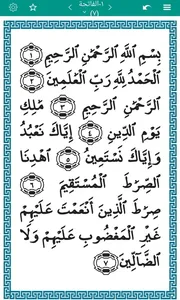 ١-الفاتحة
(٧)
بِسْمِ اللَّهِ الرَّحْمَٰنِ الرَّحِيمِ ١
الْحَمْدُ لِلَّهِ رَبِّ الْعَٰلَمِينَ ٢
الرَّحْمَٰنِ الرَّحِيمِ ٣ مَٰلِكِ
يَوْمِ الدِّينِ ٤ إِيَّاكَ نَعْبُدُ
وَإِيَّاكَ نَسْتَعِينُ ٥ اهْدِنَا
الصِّرَٰطَ الْمُسْتَقِيمَ ٦
صِرَٰطَ الَّذِينَ أَنْعَمْتَ عَلَيْهِمْ
غَيْرِ الْمَغْضُوبِ عَلَيْهِمْ وَلَا
الضَّآلِّينَ ٧